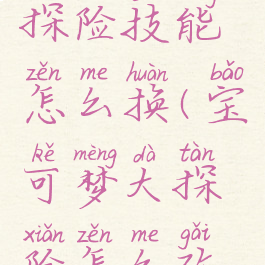 探险技能
zěn me huàn bǎo
怎么换(宝
kě mèng dà tàn
可梦大探
xiǎn zěn me gǎi
险怎么改